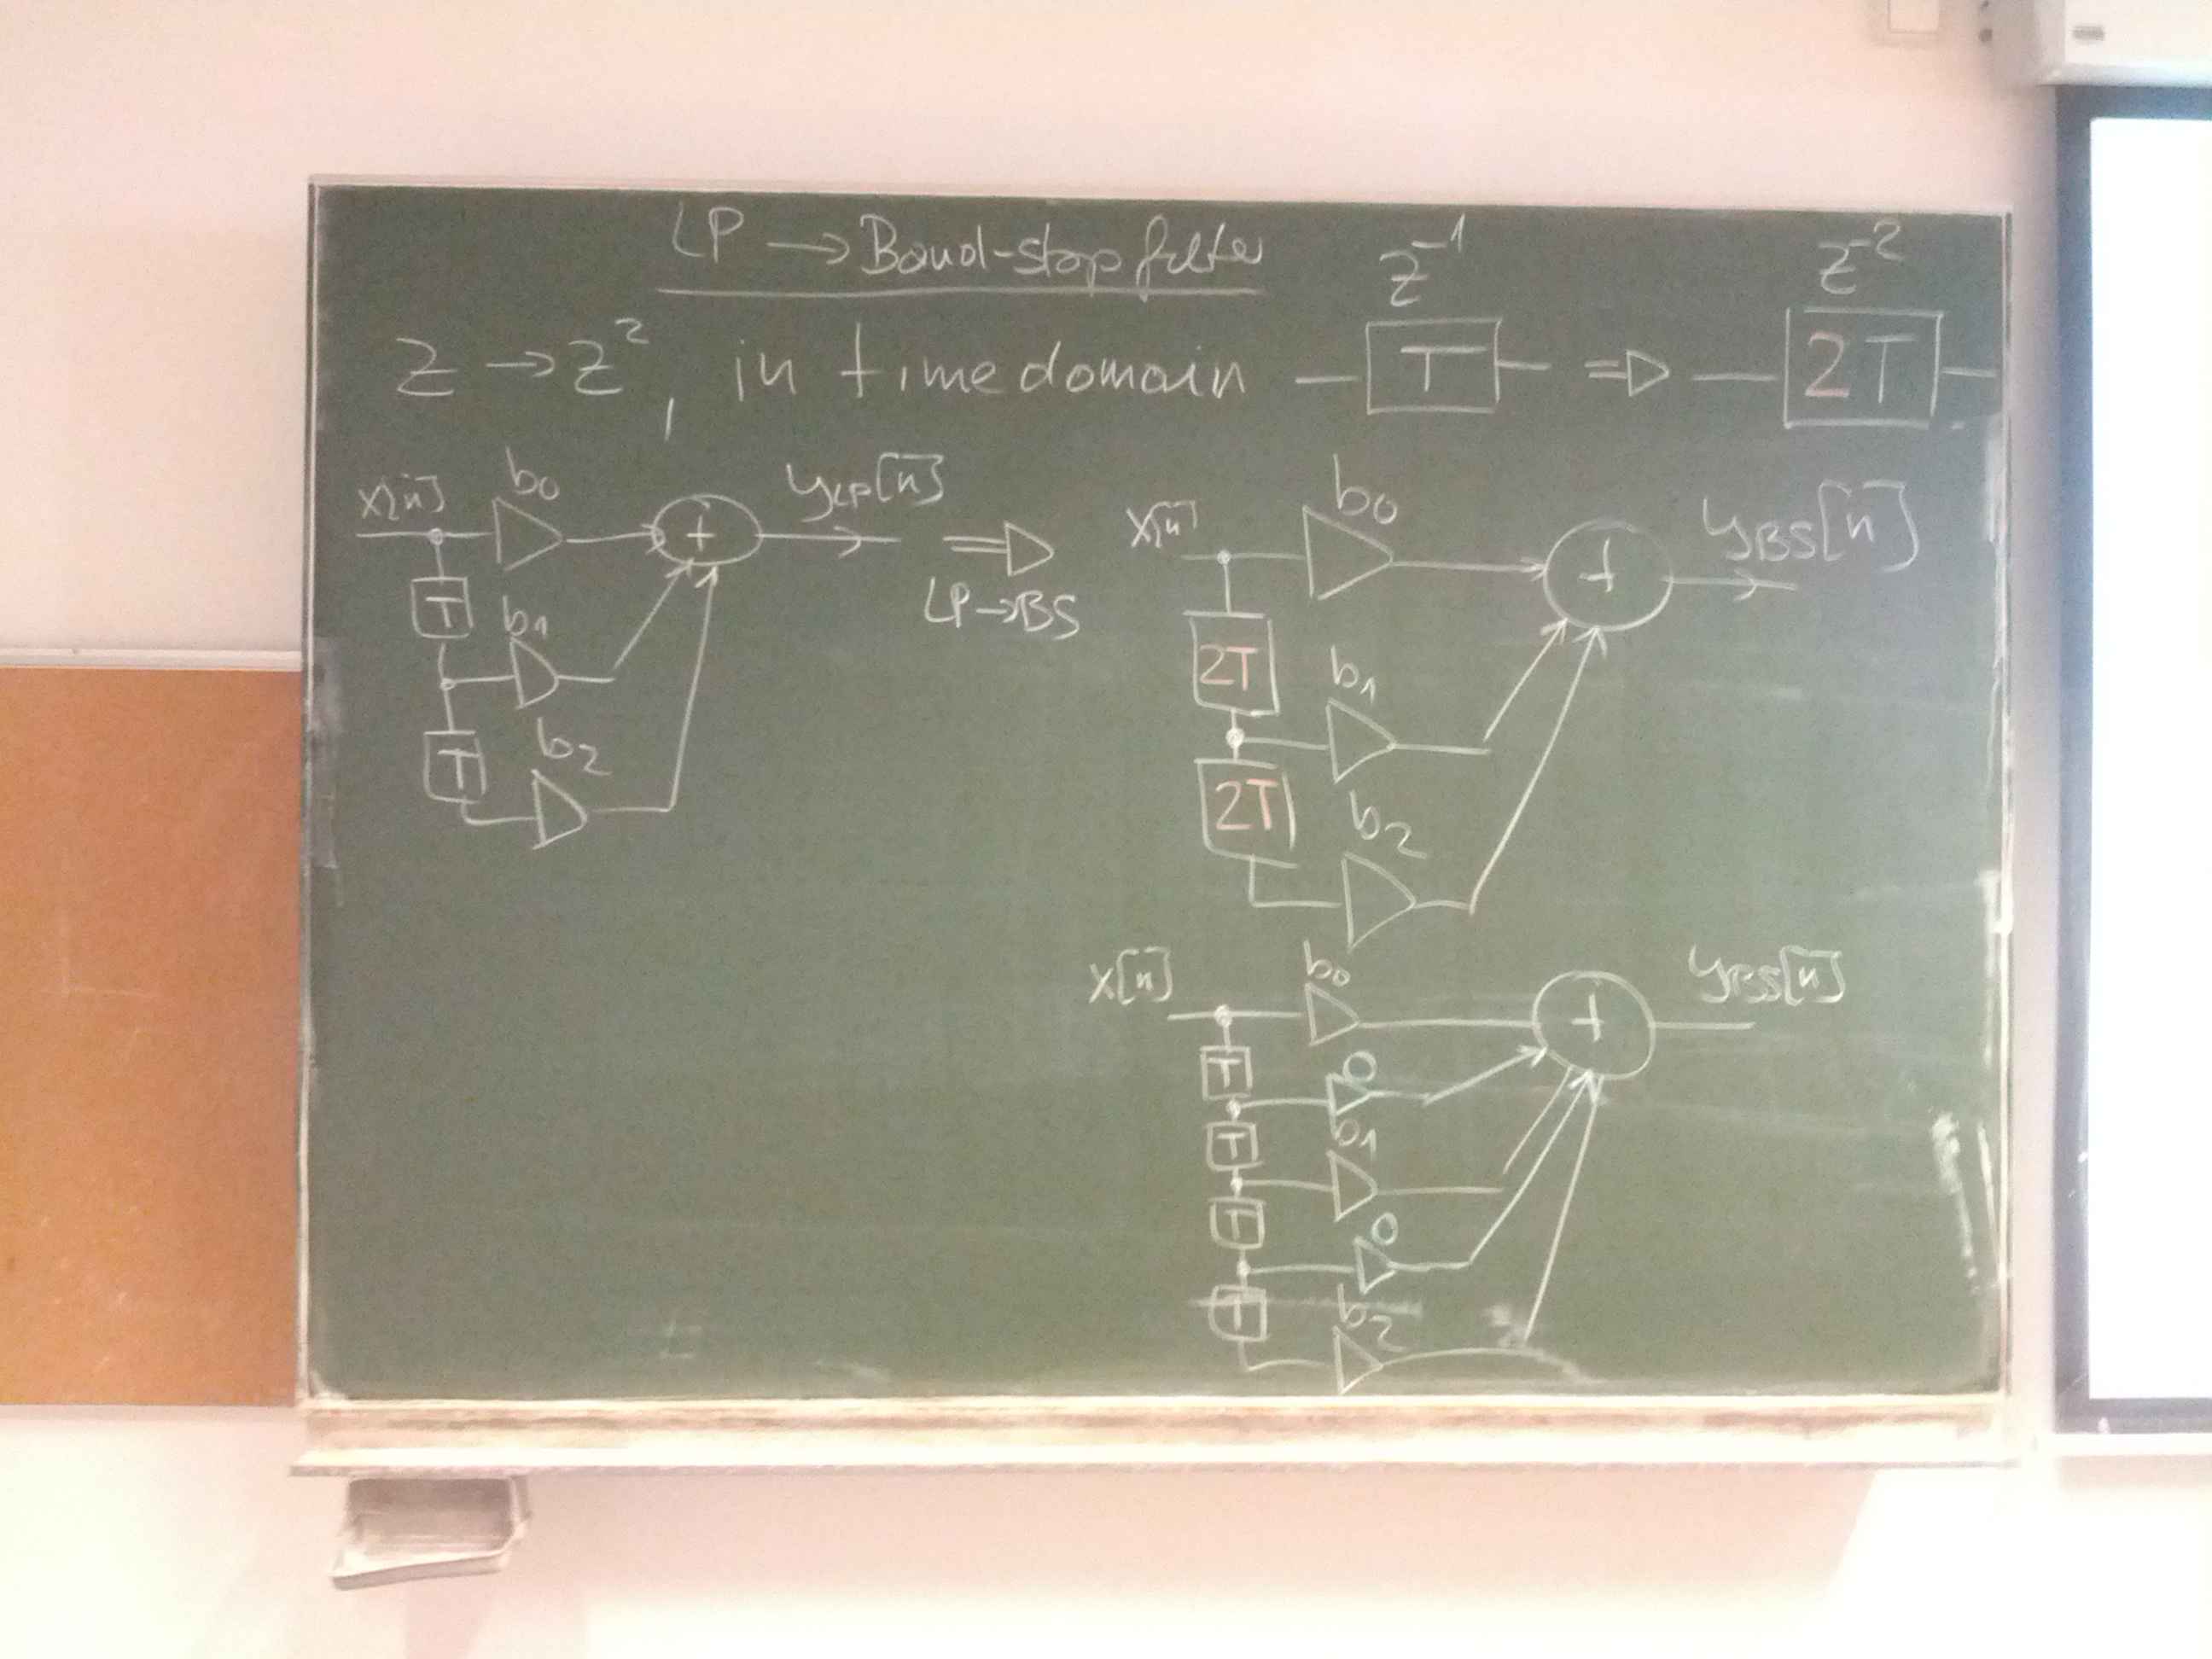 LP → Band-stop filter
z⁻¹ z⁻²
z → z², in time domain T ⇒ 2T
x[n] b0 + yLP[n]
T
b1
T
b2
⇒
LP→BS
x[n] b0 + yBS[n]
2T
b1
2T
b2
x[n] b0 + yBS[n]
T
0
T
b1
T
0
T
b2